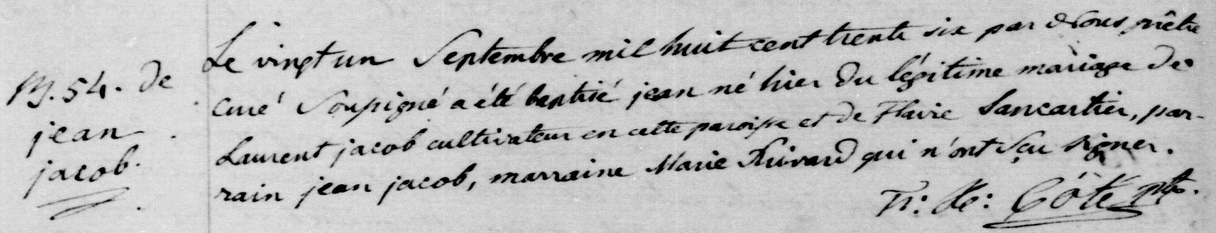 B. 54. de
jean
jacob.
Le vingt un Septembre mil huit cent trente six par Nous prêtre
curé Soupigné a été baptisé jean né hier du légitime mariage de
Laurent jacob cultivateur en cette paroisse et de Flavie Sancartier, par-
rain jean jacob, marraine Marie Rivard qui n'ont sçu signer.
Côté ptre.